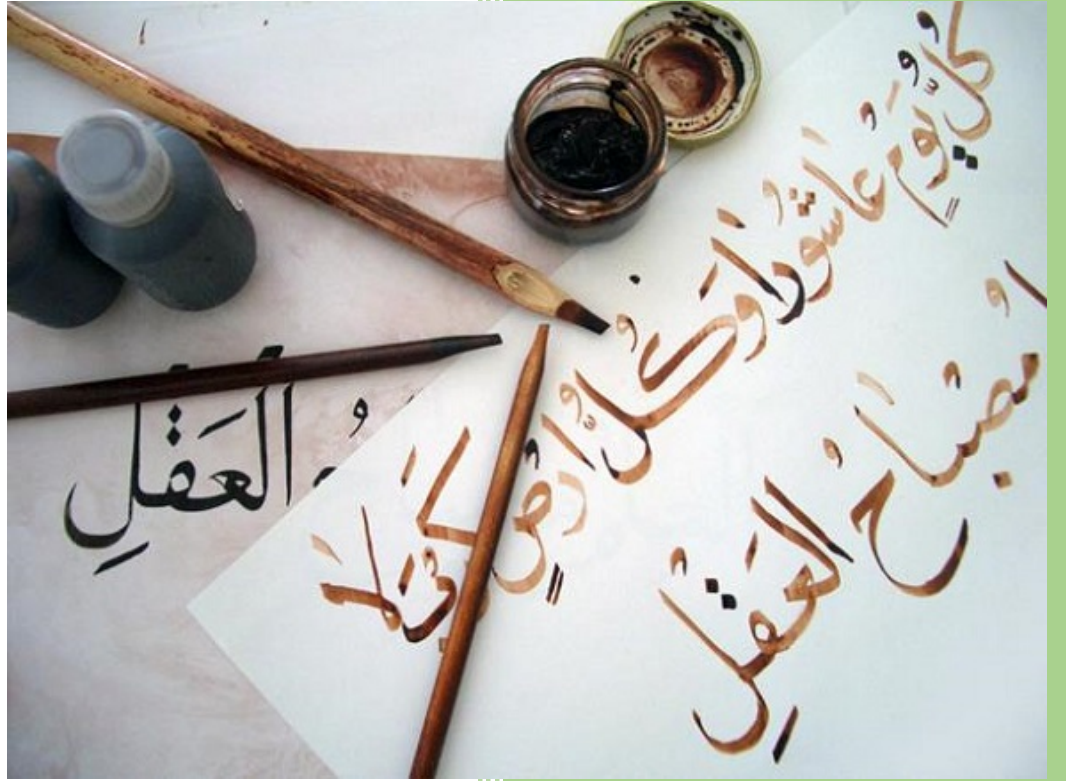 كُلُّ يَوْمٍ عَاشُورَا وَكُلُّ ارْضٍ كَرْبَلَا
مِصْبَاحُ الْعَقْلِ
الْعَقْلِ